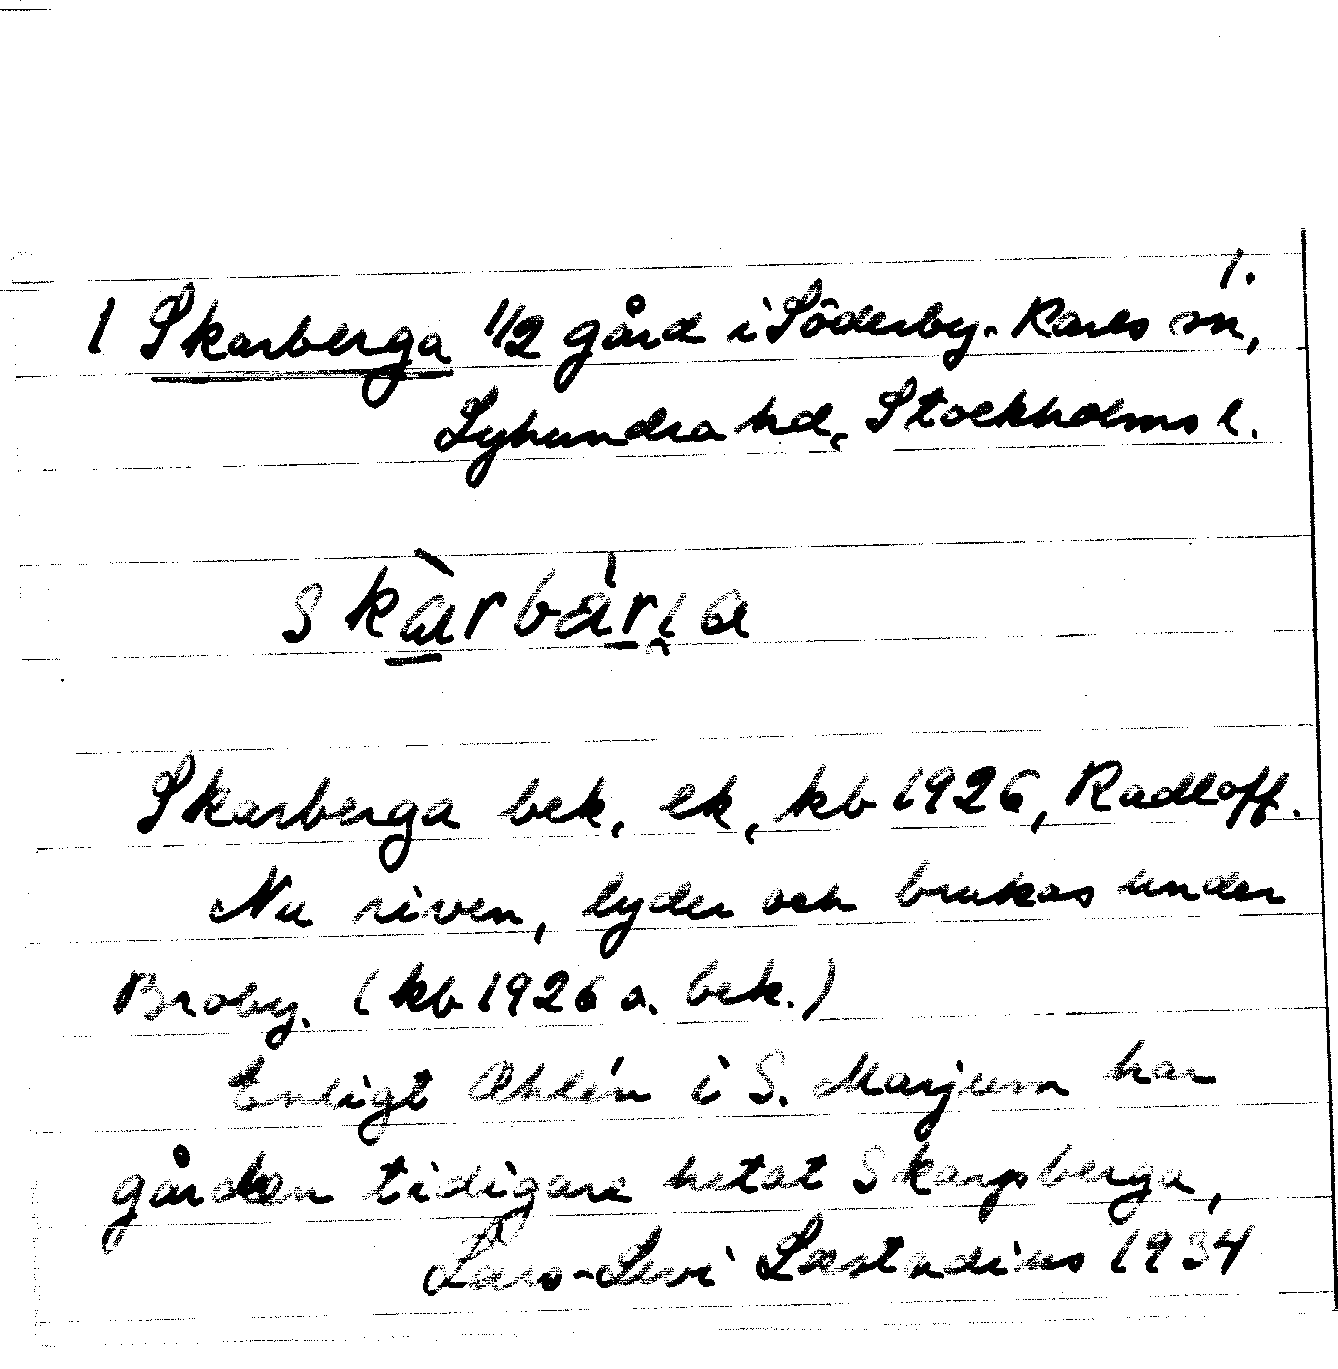 1.
1 Skarberga 1/2 gård i Söderby-Karls sn,
Lyhundra hd, Stockholms l.
skàrbár̲i̯a
Skarberga bek, ek, kb 1926, Radloff.
Nu riven, lyder och brukas under
Broby. (kb 1926 o. bek.)
Enligt Ahlén i S. Marjum har
gården tidigare hetat Skarpberga,
Lars-Levi Læstadius 1934